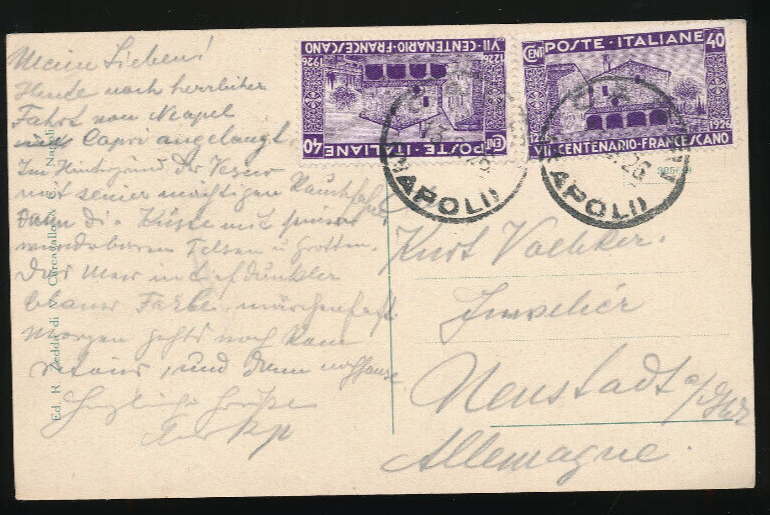 Meine Lieben!
Heute nach herrlicher
Fahrt von Neapel
nach Capri angelangt.
Im Hintergrund der Vesuv
mit seiner mächtigen Rauchfahne,
dann die Küste mit seinen
wunderbaren Felsen u Grotten.
Das Meer in tiefdunkler
blauer Farbe, märchenhaft.
Morgen gehts nach Rom
und dann
Herzliche Grüße
Ed. R. Zedda di V. Carcavallo & C. Napoli
VII-CENTENARIO-FRANCESCANO
1226 1926
POSTE-ITALIANE
40 CENT
CENT POSTE-ITALIANE 40
1226 1926
VII-CENTENARIO-FRANCESCANO
NAPOLI
26
NAPOLI
26
Kurt
Juwelier
Neustadt a/d Hdt
Allemagne.